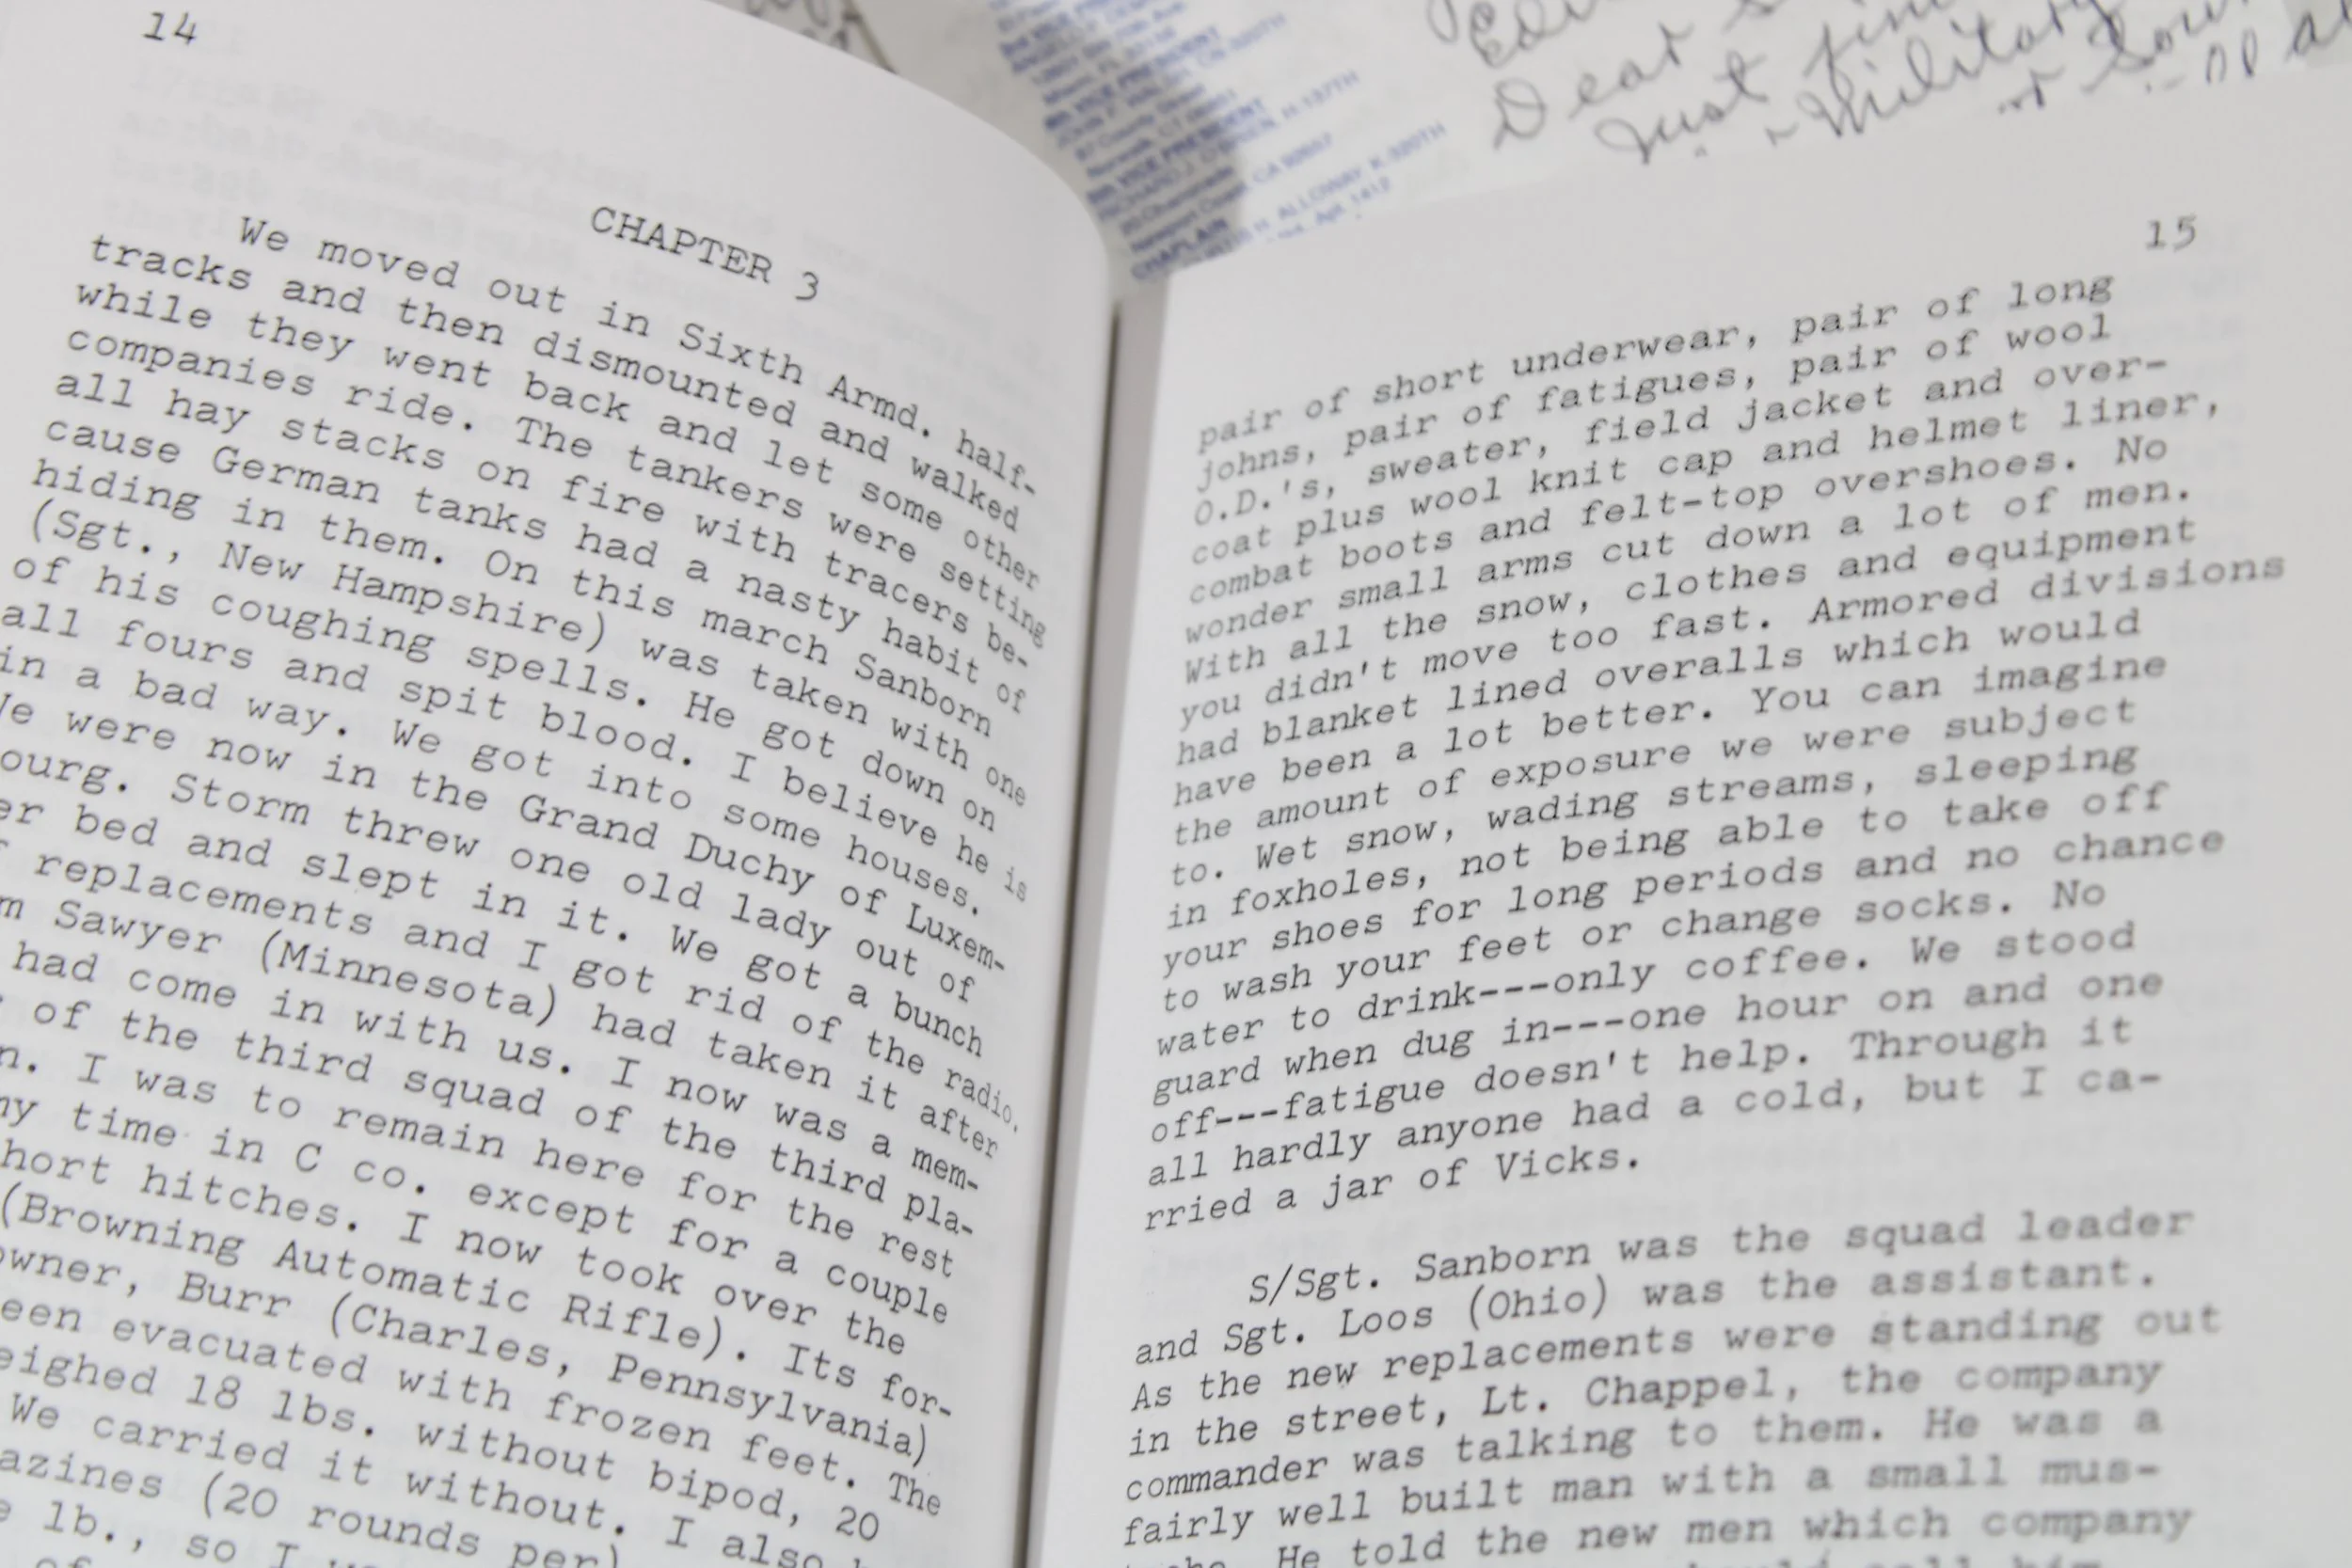 14
CHAPTER 3
We moved out in Sixth Armd. half-
tracks and then dismounted and walked
while they went back and let some other
companies ride. The tankers were setting
all hay stacks on fire with tracers be-
cause German tanks had a nasty habit of
hiding in them. On this march Sanborn
(Sgt., New Hampshire) was taken with one
of his coughing spells. He got down on
all fours and spit blood. I believe he is
in a bad way. We got into some houses.
We were now in the Grand Duchy of Luxem-
ourg. Storm threw one old lady out of
er bed and slept in it. We got a bunch
f replacements and I got rid of the radio.
m Sawyer (Minnesota) had taken it after
had come in with us. I now was a mem-
of the third squad of the third pla-
n. I was to remain here for the rest
my time in C co. except for a couple
hort hitches. I now took over the
(Browning Automatic Rifle). Its for-
owner, Burr (Charles, Pennsylvania)
een evacuated with frozen feet. The
eighed 18 lbs. without bipod, 20
We carried it without. I also
azines (20 rounds per)
e lb., so I
15
pair of short underwear, pair of long
johns, pair of fatigues, pair of wool
O.D.'s, sweater, field jacket and over-
coat plus wool knit cap and helmet liner,
combat boots and felt-top overshoes. No
wonder small arms cut down a lot of men.
With all the snow, clothes and equipment
you didn't move too fast. Armored divisions
had blanket lined overalls which would
have been a lot better. You can imagine
the amount of exposure we were subject
to. Wet snow, wading streams, sleeping
in foxholes, not being able to take off
your shoes for long periods and no chance
to wash your feet or change socks. No
water to drink---only coffee. We stood
guard when dug in---one hour on and one
off---fatigue doesn't help. Through it
all hardly anyone had a cold, but I ca-
rried a jar of Vicks.
S/Sgt. Sanborn was the squad leader
and Sgt. Loos (Ohio) was the assistant.
As the new replacements were standing out
in the street, Lt. Chappel, the company
commander was talking to them. He was a
fairly well built man with a small mus-
He told the new men which company
VICE PRESIDENT
VICE PRESIDENT
CHAPLAIN
ALLOWAY K-320TH
Dear
Just
Military